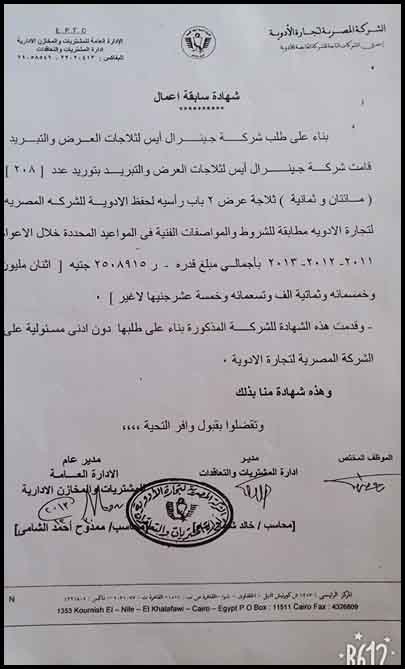 E.P.T.C
الشركة المصرية لتجارة الأدوية
الإدارة العامة للمشتريات والمخازن الادارية
إدارة المشتريات والتعاقدات
شهادة سابقة اعمال
**********
بناء على طلب شركة جينرال أيس لثلاجات العرض والتبريد
قامت شركة جينرال أيس لثلاجات العرض والتبريد بتوريد عدد [ ٢٠٨ ]
( مائتان و ثمانية ) ثلاجة عرض ٢ باب رأسيه لحفظ الادوية للشركه المصريه
لتجارة الادويه مطابقة للشروط والمواصفات الفنية فى المواعيد المحددة خلال الاعوام
٢٠١١- ٢٠١٢- ٢٠١٣ بأجمالي مبلغ قدره - ر ٢٥٠٨٩١٥ جنيه [ اثنان مليون
وخمسمائه وثمانية الف وتسعمائه وخمسة عشرجنيها لاغير ] ٠
- وقدمت هذه الشهادة للشركة المذكورة بناء على طلبها دون ادنى مسئولية على
الشركة المصرية لتجارة الادوية ٠
وهذه شهادة منا بذلك
وتفضلوا بقبول وافر التحية ,,,,
الموظف المختص
مدير
ادارة المشتريات والتعاقدات
مدير عام
الادارة العامة
للمشتريات والمخازن الادارية
٢٠١٣
[محاسب / خالد
[محاسب/ ممدوح أحمد الشامى]
N
1353 Kournish El – Nile – El Khalafawi – Cairo – Egypt P O Box : 11511 Cairo Fax : 4326809
R612